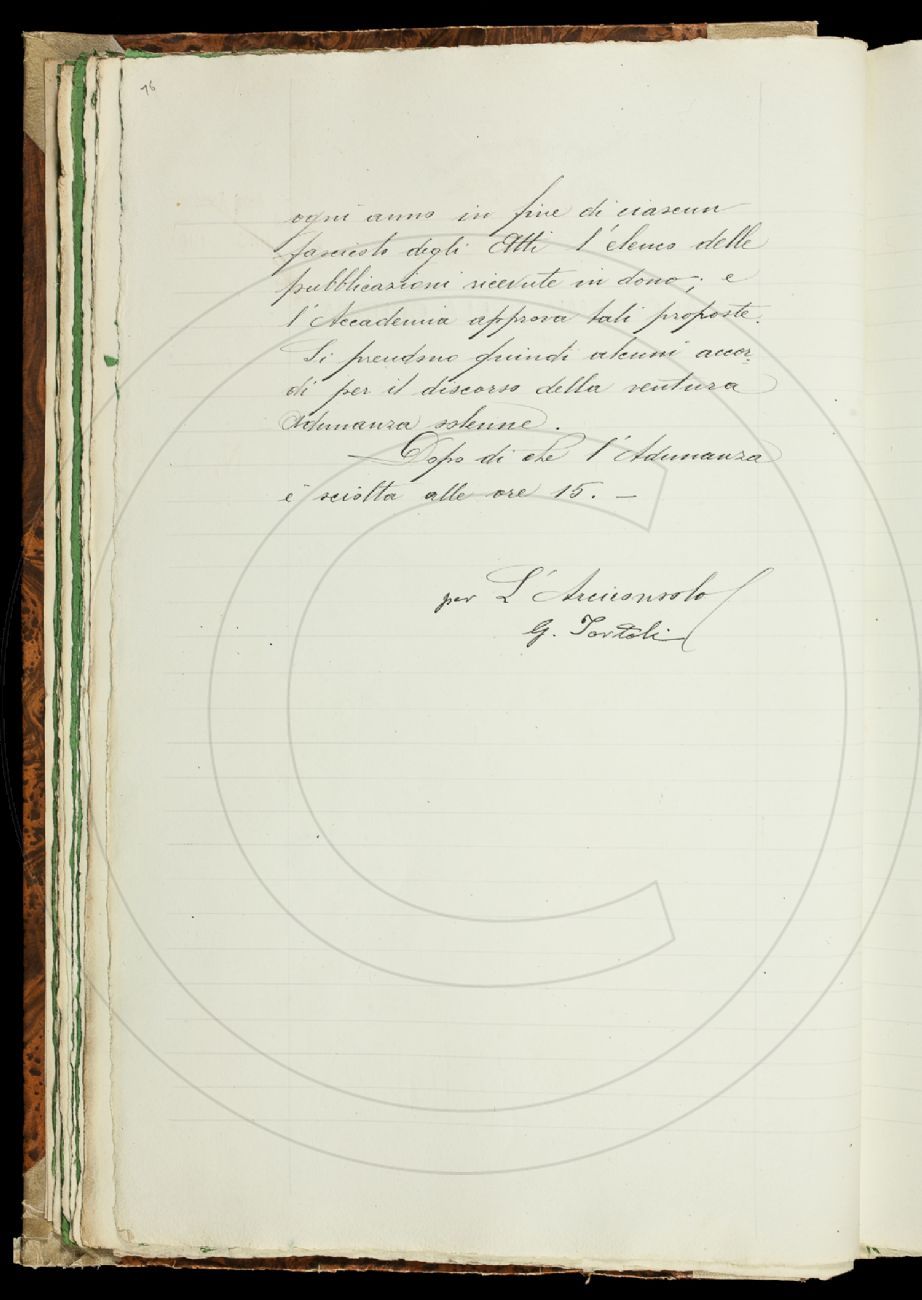 76
ogni anno in fine di ciascun
fascicolo degli Atti l'elenco delle
pubblicazioni ricevute in dono; e
l'Accademia approva tali proposte.
Si prendono quindi alcuni accor-
di per il discorso della ventura
Adunanza solenne.
Dopo di che l'Adunanza
è sciolta alle ore 15. —
per L'Arciconsolo
G. Tortoli